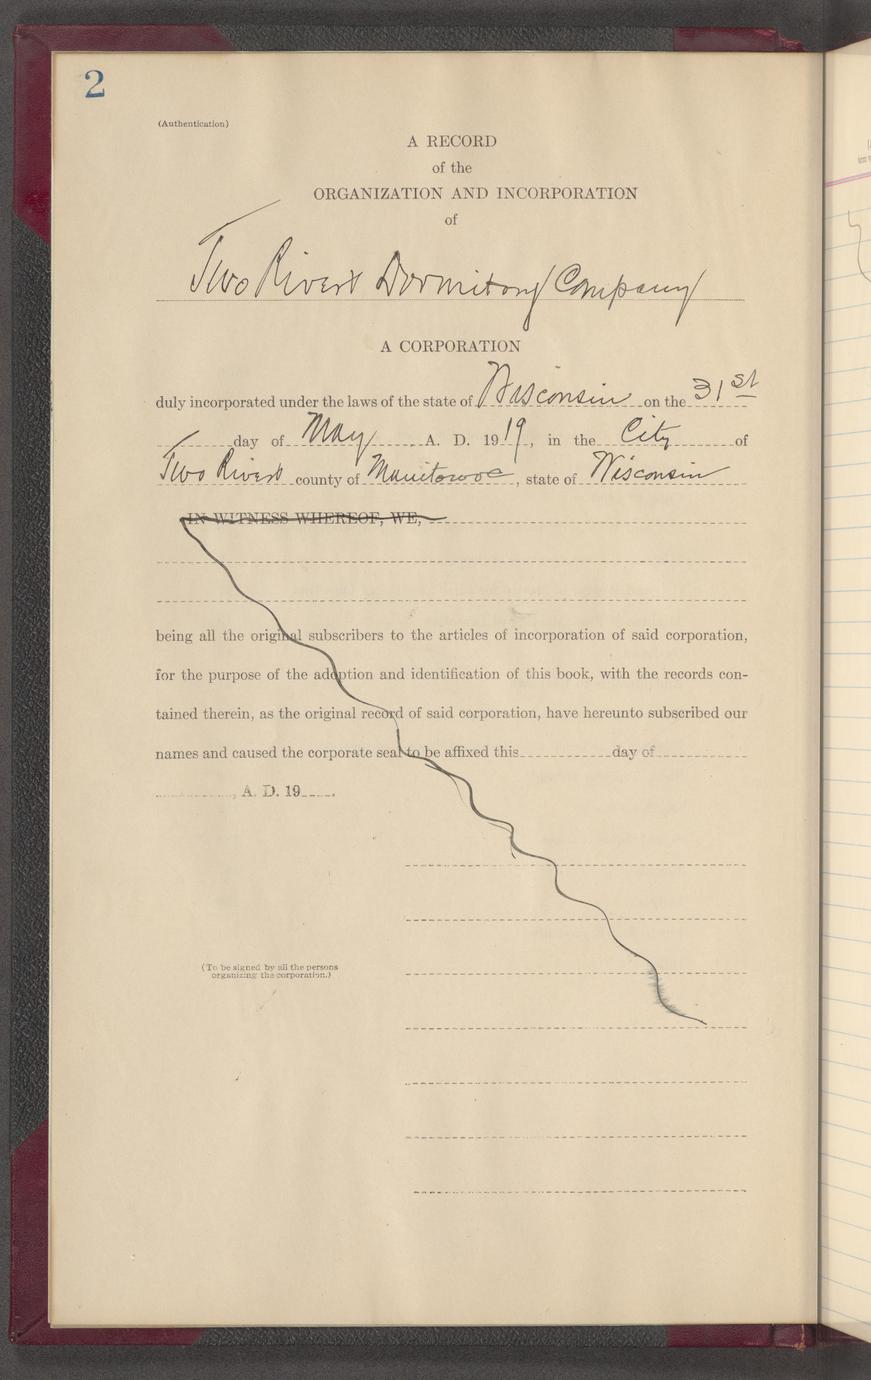 2
(Authentication)
A RECORD
of the
ORGANIZATION AND INCORPORATION
of
Two Rivers Dormitory Company
A CORPORATION
duly incorporated under the laws of the state of Wisconsin on the 31st
day of May, A. D. 1919, in the City of
Two Rivers county of Manitowoc, state of Wisconsin
IN WITNESS WHEREOF, WE,
being all the original subscribers to the articles of incorporation of said corporation,
for the purpose of the adoption and identification of this book, with the records con-
tained therein, as the original record of said corporation, have hereunto subscribed our
names and caused the corporate seal to be affixed this day of
, A. D. 19 .
(To be signed by all the persons
organizing the corporation.)